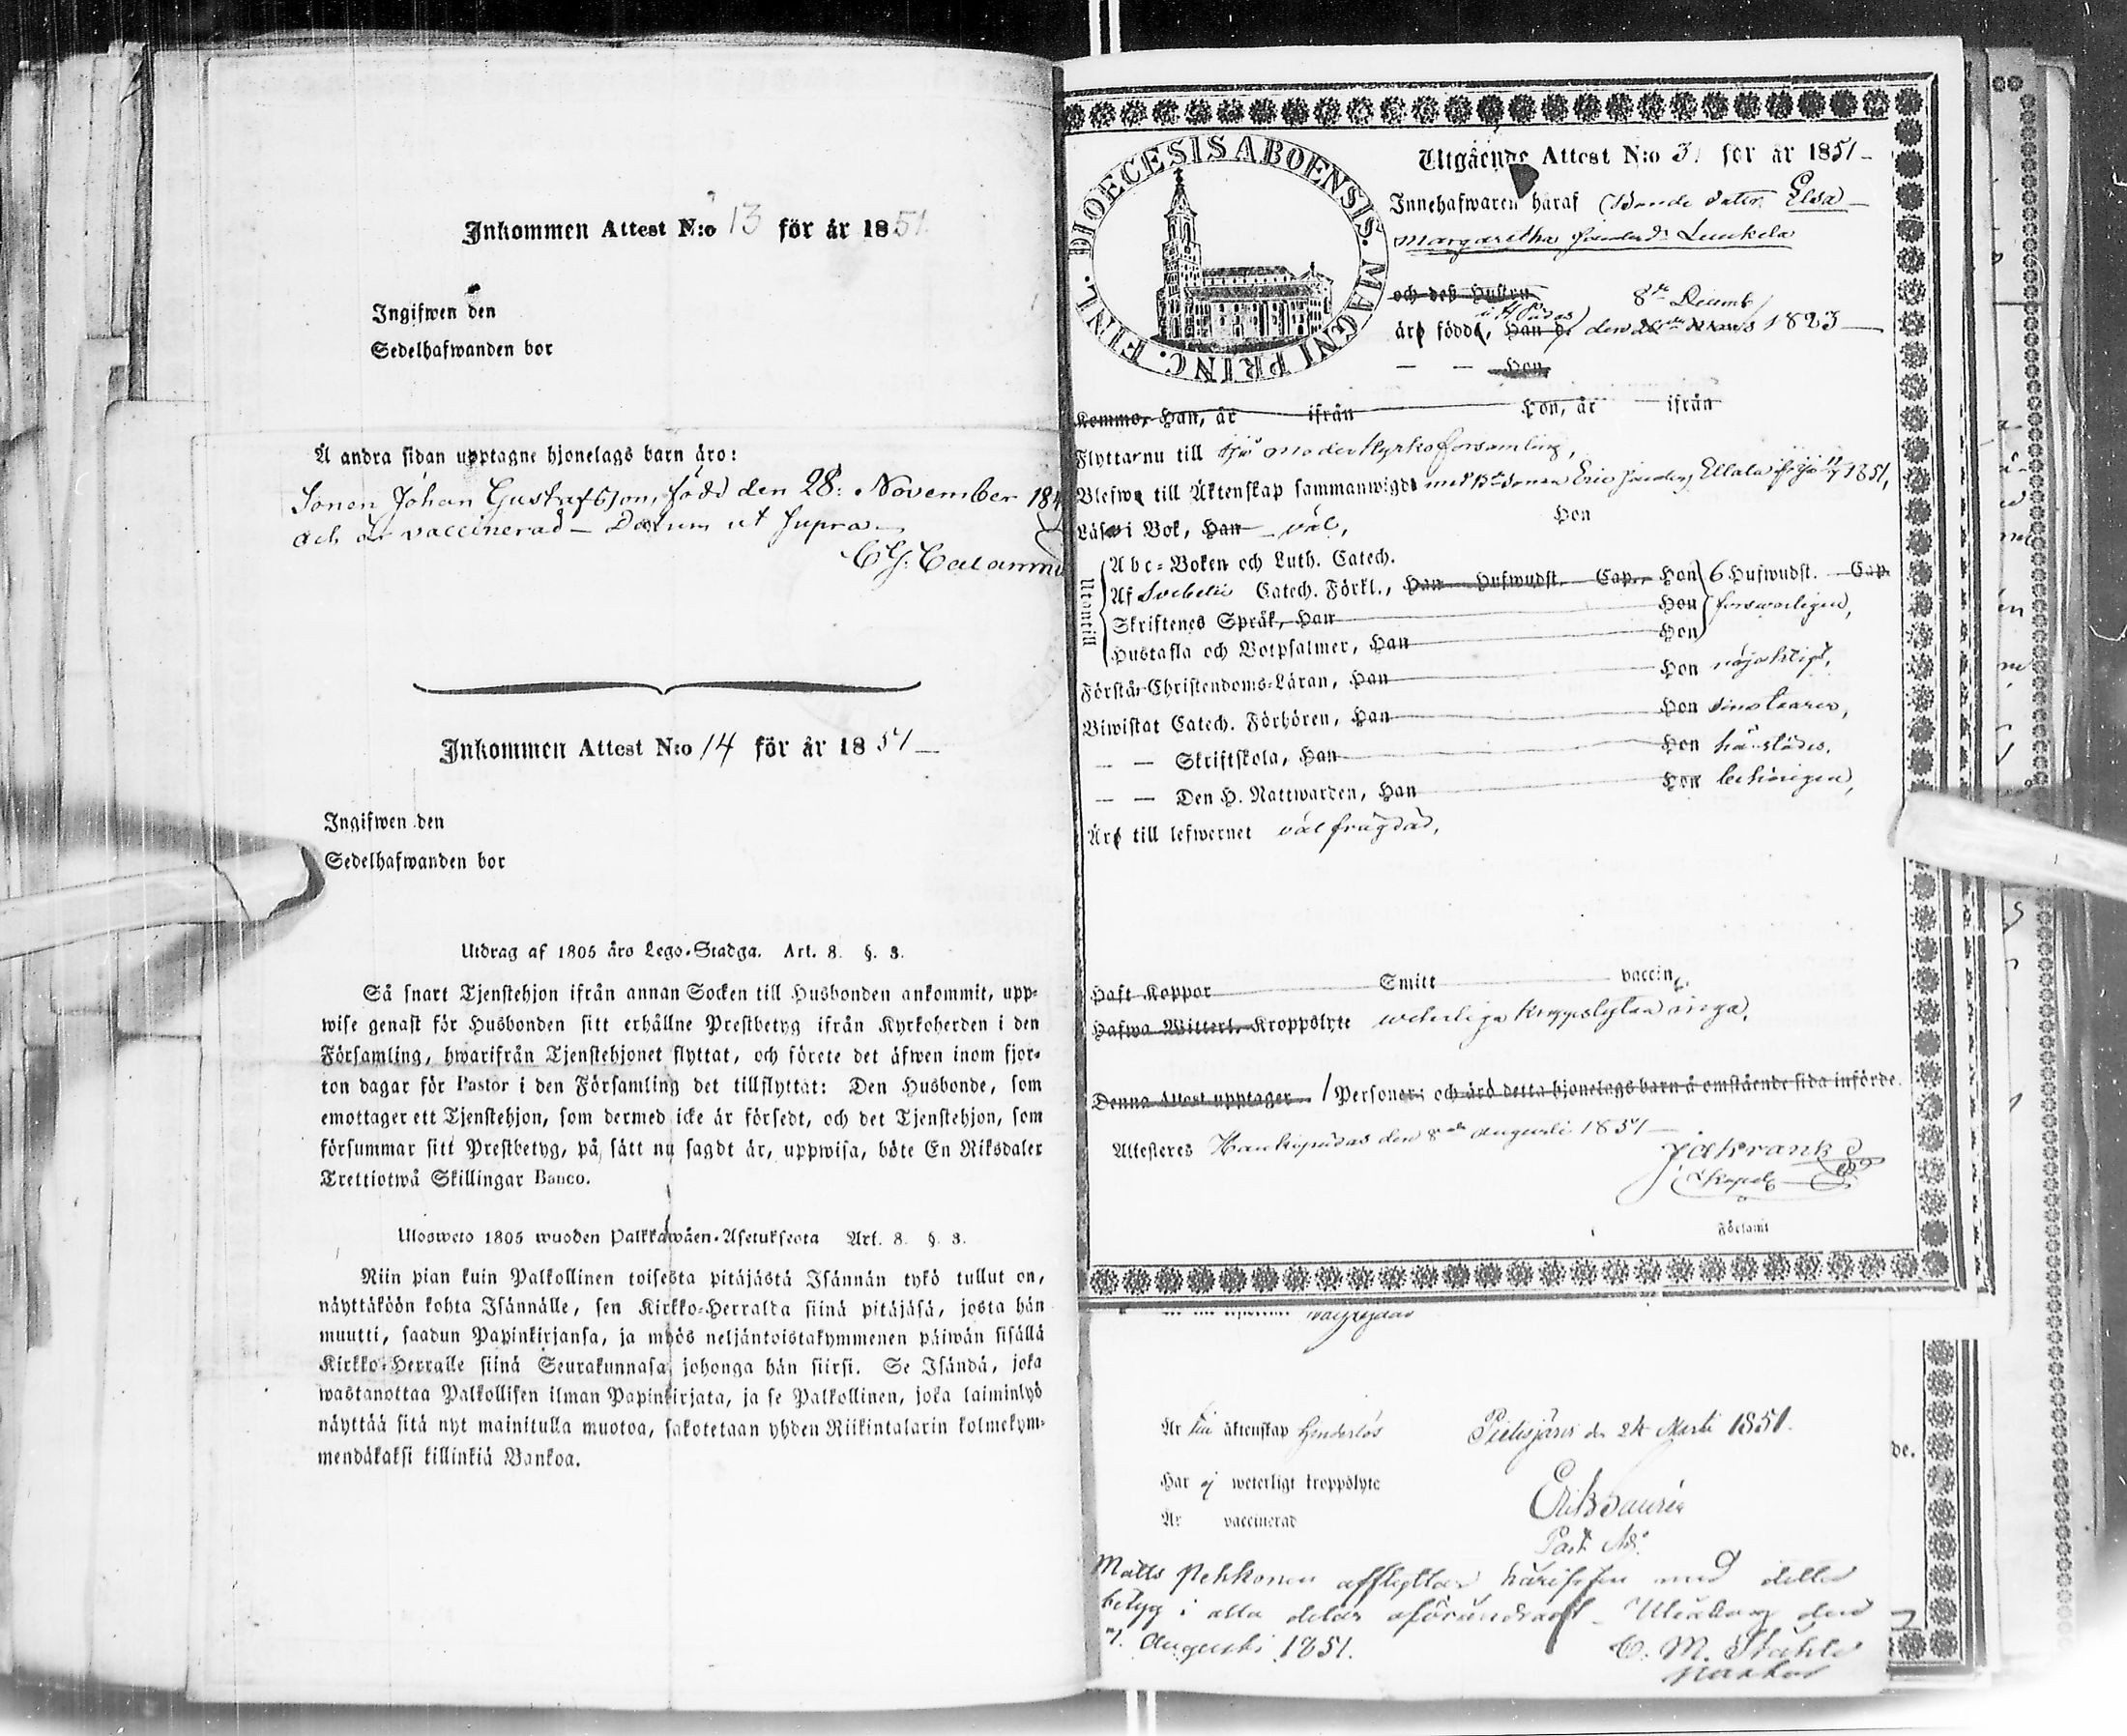 Inkommen Attest N:o 13 för år 1851.
Ingifwen den
Sedelhafwanden bor
Å andra sidan upptagne hjonelags barn äro:
Sonen Johan Gustafsson, född den 28: November 184
och är vaccinerad – Datum ut supra –
Inkommen Attest N:o 14 för år 1851 –
Ingifwen den
Sedelhafwanden bor
Utdrag af 1805 års Lego-Stadga. Art. 8. §. 3.
Så snart Tjenstehjon ifrån annan Socken till Husbonden ankommit, upp-
wise genast för Husbonden sitt erhållne Prestbetyg ifrån Kyrkoherden i den
Församling, hwarifrån Tjenstehjonet flyttat, och förete det äfwen inom fjor-
ton dagar för Pastor i den Församling det tillflyttat: Den Husbonde, som
emottager ett Tjenstehjon, som dermed icke är försedt, och det Tjenstehjon, som
försummar sitt Prestbetyg, på sätt nu sagdt är, uppwisa, böte En Riksdaler
Trettiotwå Skillingar Banco.
Ulosweto 1805 wuoden Palkkawäen-Asetuksesta Art. 8. §. 3.
Niin pian kuin Palkollinen toisesta pitäjästä Isännän tykö tullut on,
näyttäköön kohta Isännälle, sen Kirkko-Herralda siinä pitäjäsä, josta hän
muutti, saadun Papinkirjansa, ja myös neljäntoistakymmenen päiwän sisällä
Kirkko-Herralle siinä Seurakunnasa johonga hän siirsi. Se Isändä, joka
wastanottaa Palkollisen ilman Papinkirjata, ja se Palkollinen, joka laiminlyö
näyttää sitä nyt mainitulla muotoa, sakotetaan yhden Riikintalarin kolmekym-
mendäkaksi killinkiä Bankoa.
DIOECESIS ABOENSIS. MAGNI PRINC. FINL.
Utgående Attest N:o 31 för år 1851 –
Innehafwaren häraf Bonde dotter Elsa
Margaretha Luukela
och deß Hustru
8de Decemb
äro födde, Han d. den 1823 –
– – Hon
Kommo, Han, år ifrån Hon, år ifrån
Flyttar nu till Ijo moderkyrko församling,
Blefwe till Äktenskap sammanwigde med Eric 1851,
Läser i Bok, Han – väl, Hon
Utantill
Abc-Boken och Luth. Catech.
Af Svebelii Catech. Förkl., Han Hufwudst. Cap., Hon 6 Hufwudst. Cap.
Skriftenes Språk, Han Hon försvarligen,
Hustafla och Botpsalmer, Han Hon
Förstår Christendoms-Läran, Han Hon nöjaktigt,
Biwistat Catech. Förhören, Han Hon
– – Skriftskola, Han Hon härstädes,
– – Den H. Nattwarden, Han Hon behörigen,
Äro till lefwernet väl frägdad,
Haft Koppor Smitt vaccin
Hafwa Witterl. Kroppslyte weterliga kroppslyten inga.
Denna Attest upptager 1 Personer; och äro detta hjonelags barn å omstående sida införde.
Attesteres Haukipudas den 8de Augusti 1851 –
J A Krank
Kapel
Församl
Är till äktenskap hinderlös Pielisjärvi d. 24 Marti 1851.
Har ej weterligt kroppslyte
Är vaccinerad
Past. Adj.
Matts Pehkonen afflyttar härifrån med detta
betyg i alla delar oförändradt – Uleåborg den
Augusti 1851. C. M. Ståhle